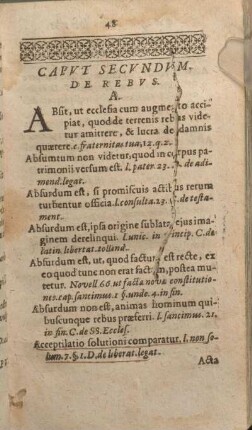 48
CAPVT SECVNDVM.
DE REBVS.
A.
ABsit, ut ecclesia cum augmento acci-
piat, quod de terrenis rebus vide-
tur amittere, & lucra de damnis
quærere. c. fraternitas tua, 12. q. 2.
Absumtum non videtur, quod in corpus pa-
trimonii versum est. l. pater. 23. de adi-
mend. legat.
Absurdum est, si promiscuis actibus rerum
turbentur officia. l. consulta. 23. de testa-
ment.
Absurdum est, ipsa origine sublata, ejus ima-
ginem derelinqui. l. unic. in princip. C. de
latin. libertat. tollend.
Absurdum est, ut, quod factum est recte, ex
eo quod tunc non erat factum, postea mu-
tetur. Novell. 66. ut facta nova constitutio-
nes. cap. sancimus 1 §. unde. 4. in fin.
Absurdum non est, animas hominum qui-
buscunque rebus præferri. l. sancimus. 21.
in fin. C. de SS. Eccles.
Acceptilatio solutioni comparatur. l. non so-
lum. 7. §. 1. D. de liberat. legat.
Acta